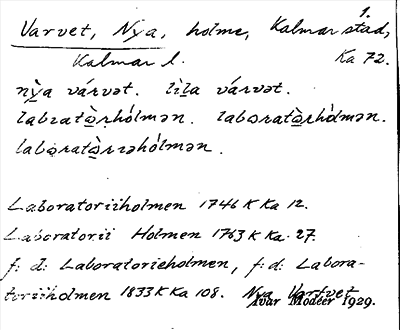 1.
Varvet, Nya, holme, Kalmar stad,
Kalmar l. Ka 72.
nỳa várvət. lìla várvət.
labratò̱rhólmən. laboratò̱rhòlmən.
laboratò̱rɪəhólmən.
Laboratoriiholmen 1746 K Ka 12.
Laboratorii Holmen 1763 K Ka. 27.
f: d: Laboratorieholmen, f: d: Labora-
toriiholmen 1833 K Ka 108. Nya Varfvet
Ivar Modéer 1929.